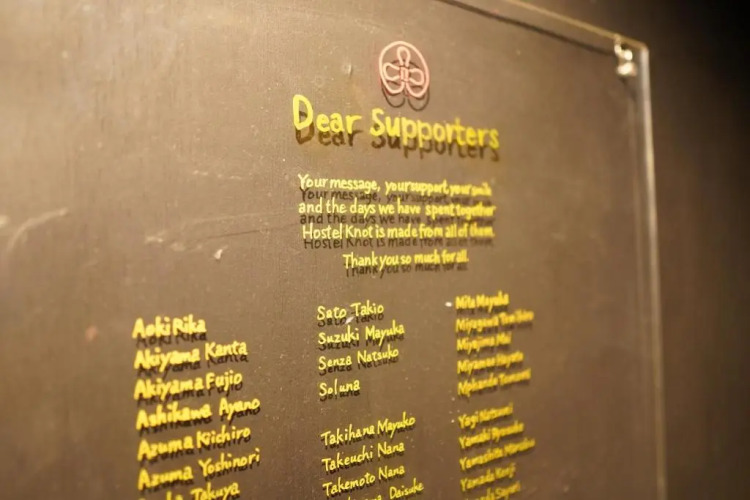 Dear Supporters
Your message, your support, your smile
and the days we have spent together
Hostel Knot is made from all of them.
Thank you so much for all.
Aoki Rika
Akiyama Kanta
Akiyama Fujio
Ashikawa Ayano
Azuma Kiichiro
Azuma Yoshinori
Takuya
Sato Takio
Suzuki Mayuka
Senza Natsuko
Soluna
Takihana Mayuko
Takeuchi Nana
Takemoto Nana
Daisuke
Mita Mayuka
Miyagawa
Miyajima
Miyamae Hayato
Yagi Natsumi
Yamaki Ryosuke
Yamashita
Yamada Koji